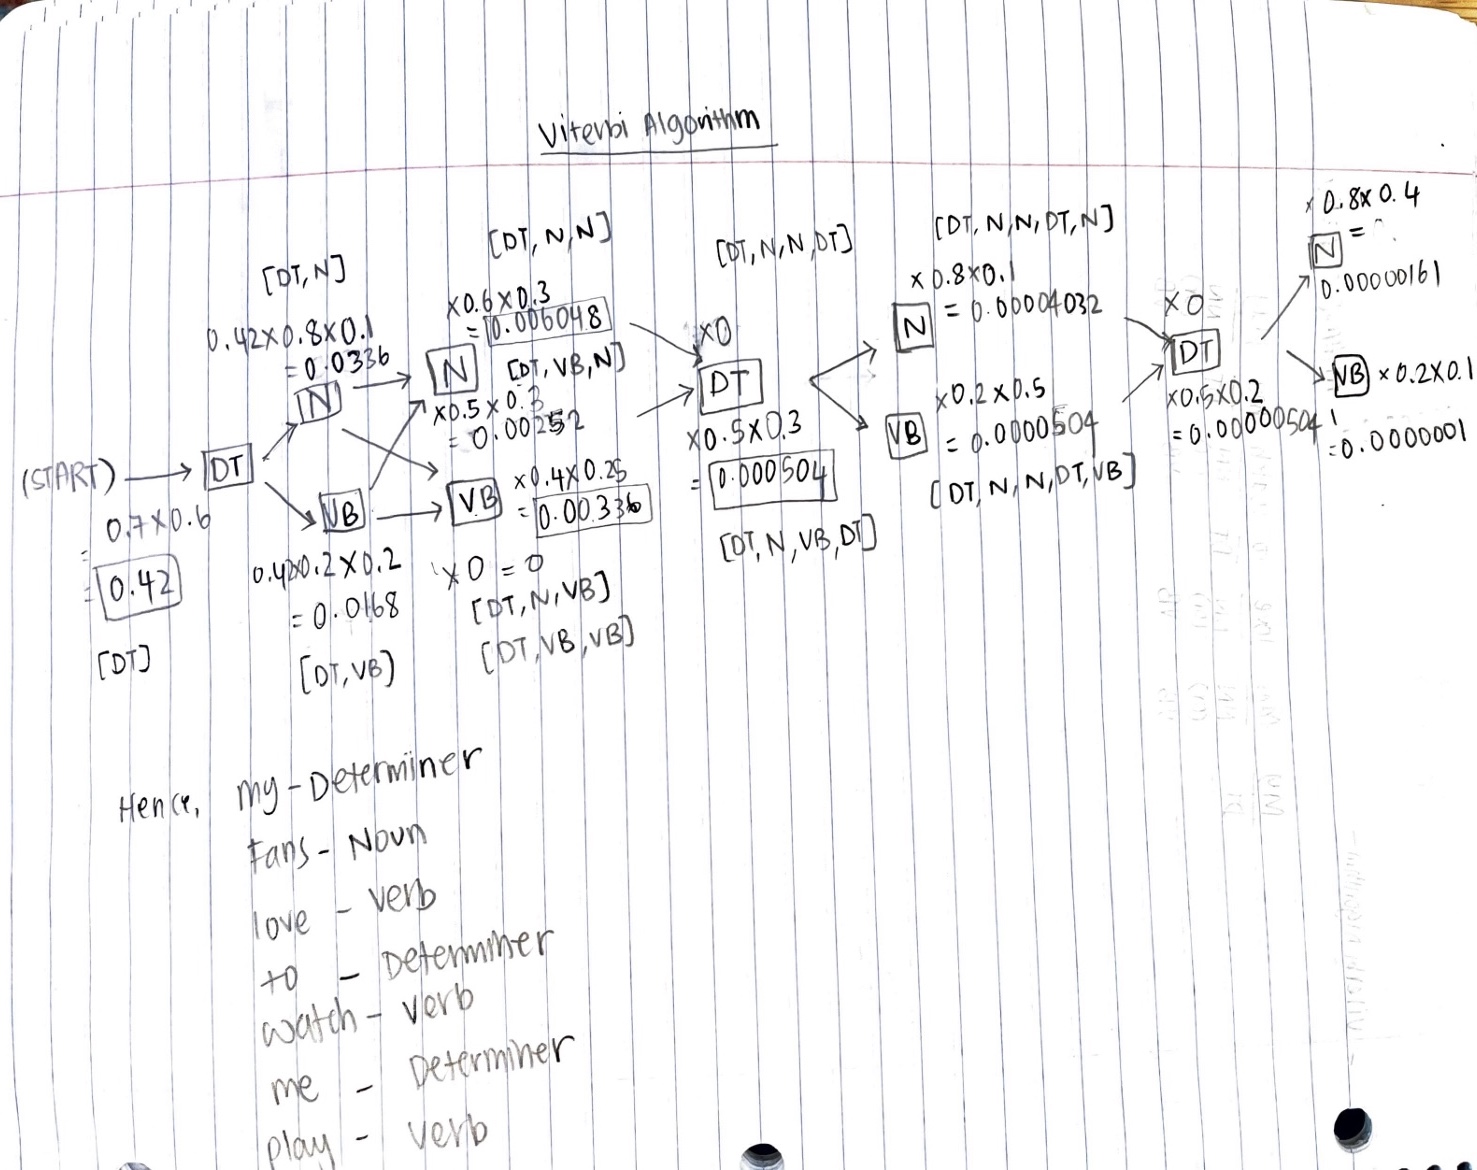 Viterbi Algorithm
(START)
0.7x0.6
=
= 0.42
[DT]
DT
[DT,N]
0.42x0.8x0.1
= 0.0336
N
VB
0.42x0.2x0.2
= 0.0168
[DT,VB]
[DT,N,N]
x0.6x0.3
= 0.006048
N
[DT,VB,N]
x0.5x0.3
= 0.00252
VB
x0.4x0.25
= 0.00336
x0 = 0
[DT,N,VB]
[DT,VB,VB]
[DT,N,N,DT]
x0
DT
x0.5x0.3
= 0.000504
[DT,N,VB,DT]
[DT,N,N,DT,N]
x0.8x0.1
N
= 0.00004032
x0.2x0.5
VB
= 0.0000504
[DT,N,N,DT,VB]
x0
DT
x0.5x0.2
= 0.00000504
x0.8x0.4
N
=
0.00000161
VB x0.2x0.1
=0.0000001
Hence, my-Determiner
Fans- Noun
love - verb
to - Determiner
watch- verb
me - Determiner
play - verb